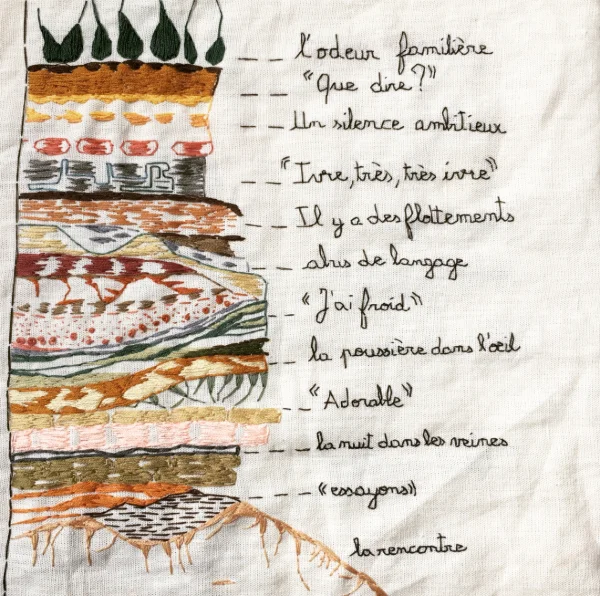 l'odeur familière
"Que dire ?"
Un silence ambitieux
"Ivre, très, très ivre"
Il y a des flottements
abus de langage
"J'ai froid"
la poussière dans l'œil
"Adorable"
la nuit dans les veines
"essayons"
la rencontre